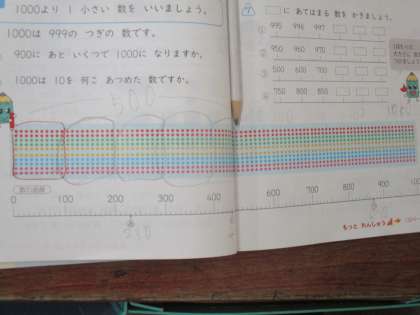 1000より 1 小さい 数を いいましょう。
1000は 999の つぎの 数です。
900に あと いくつで 1000に なりますか。
1000は 10を 何こ あつめた 数ですか。
500
□に あてはまる 数を かきましょう。
① 995 996 997
② 950 960 970
③ 500 600 700
④ 750 800 850
数の直線
0 100 200 300 400 500 600 700 800 900
もっと れんしゅう